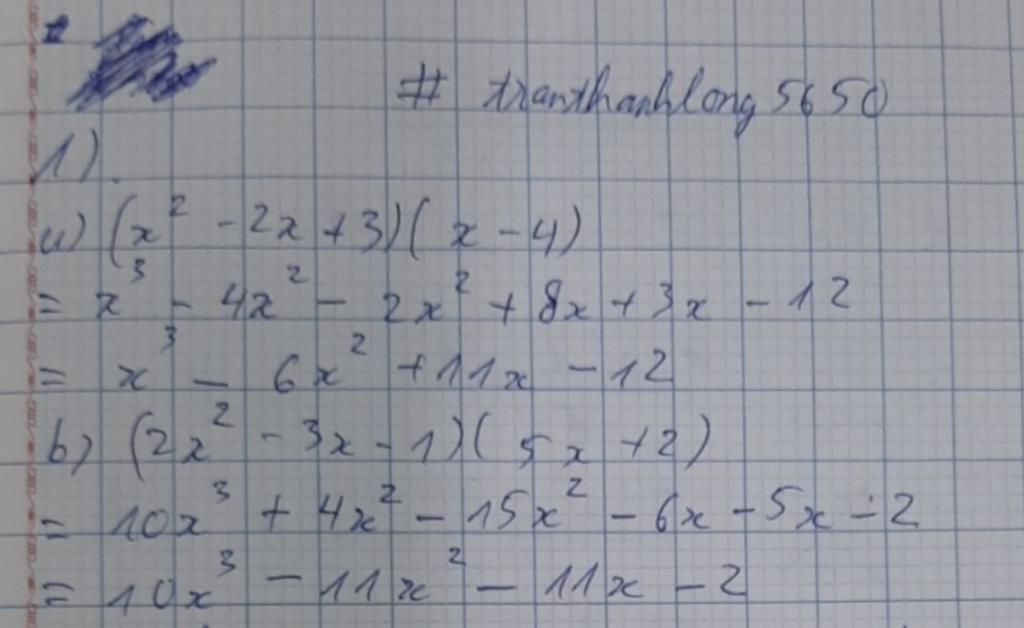 # tranthanhlong5650
1)
a) (x² - 2x + 3)(x - 4)
= x³ - 4x² - 2x² + 8x + 3x - 12
= x³ - 6x² + 11x - 12
b) (2x² - 3x - 1)(5x + 2)
= 10x³ + 4x² - 15x² - 6x - 5x - 2
= 10x³ - 11x² - 11x - 2